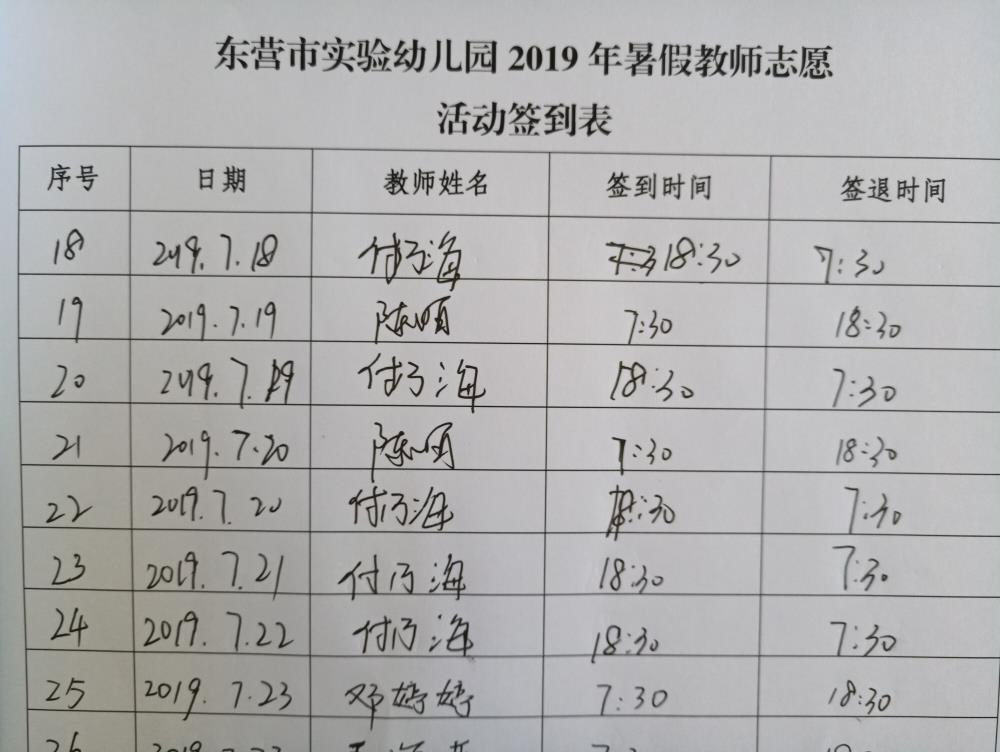 东营市实验幼儿园 2019 年暑假教师志愿
活动签到表
序号 日期 教师姓名 签到时间 签退时间
18 2019.7.18 付乃海 18:30 7:30
19 2019.7.19 陈顺 7:30 18:30
20 2019.7.19 付乃海 18:30 7:30
21 2019.7.20 陈顺 7:30 18:30
22 2019.7.20 付乃海 18:30 7:30
23 2019.7.21 付乃海 18:30 7:30
24 2019.7.22 付乃海 18:30 7:30
25 2019.7.23 邓婷婷 7:30 18:30
26